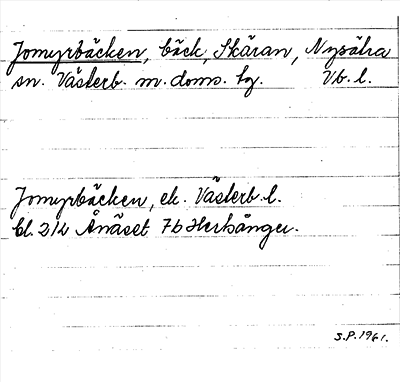 Jomyrbäcken, bäck, Skäran, Nysätra
sn. Västerb. m. doms. tg. Vb. l.
Jomyrbäcken, ek. Västerb. l.
bl. 212 Ånäset 7b Herrsånger.
S.P. 1961.